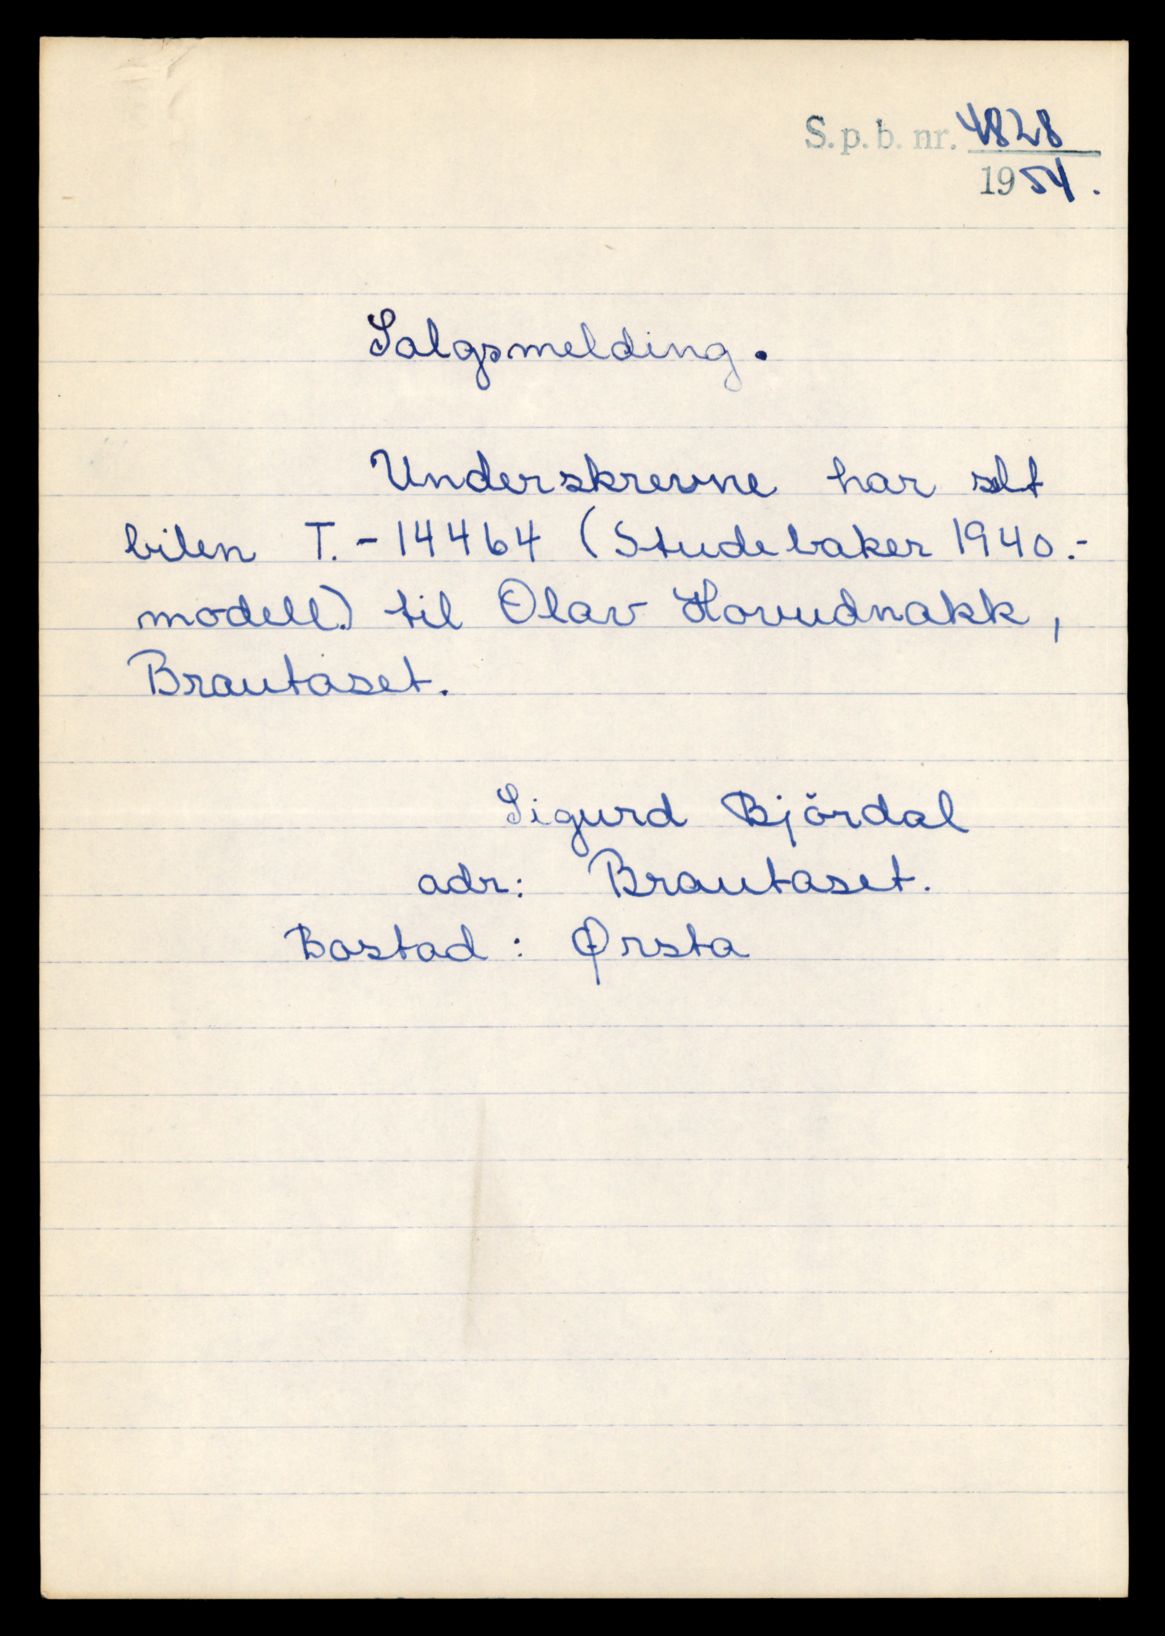 S. p. b. nr. 4828
1954.
Salgsmelding.
Underskrevne har selt
bilen T. - 14464 (Studebaker 1940.-
modell.) til Olav Hovudnakk,
Brautaset.
Sigurd Björdal
adr: Brautaset.
Bostad : Ørsta